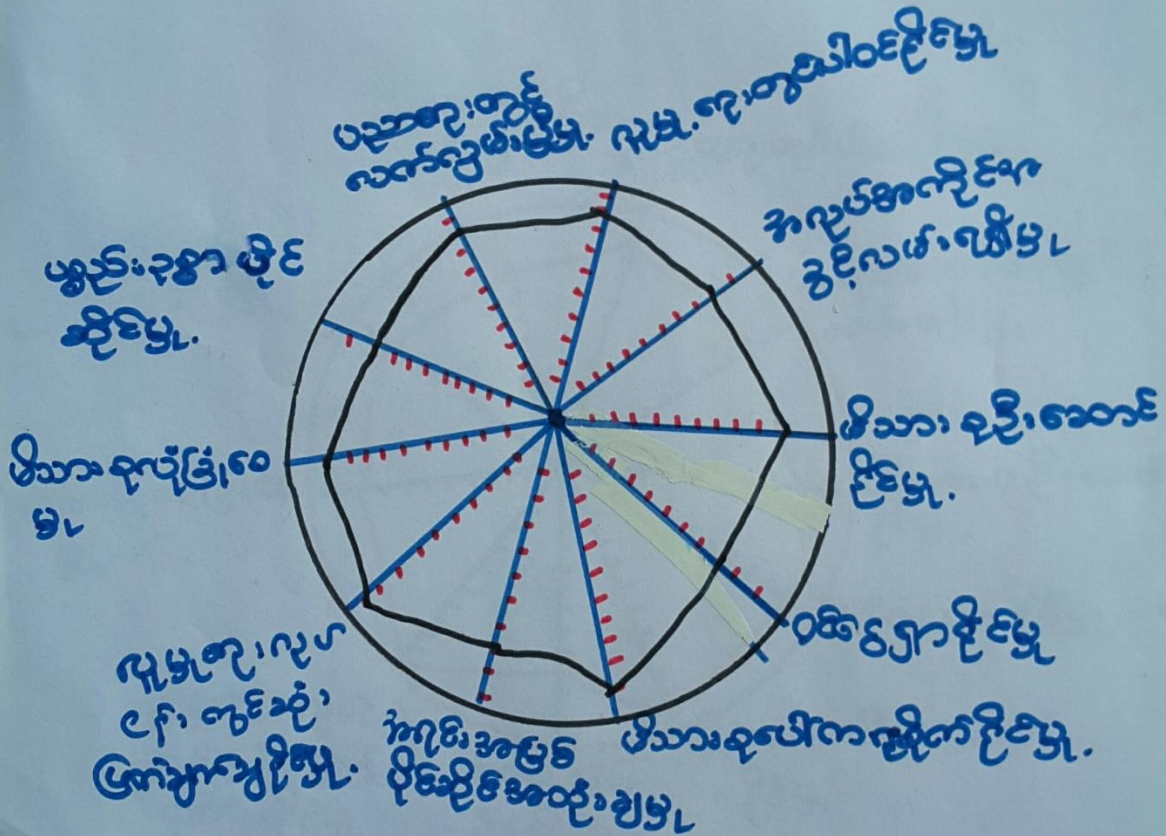 ပညာရေးတွင်
လက်လှမ်းမီမှု.
လူမှု.ရေးတွင်ပါဝင်နိုင်မှု
အလုပ်အကိုင်ရှာ
ခွင့်လမ်းရှိမှု
မိသားစုဦးဆောင်
နိုင်မှု.
ဝင်ငွေရှာနိုင်မှု
မိသားစုပေါ်
အရင်းအမြစ်
ပိုင်ဆိုင်အသုံးချမှု
လူမှုရေးလုပ်
ငန်းတွင်ဆုံး
ဖြတ်ချက်ချနိုင်မှု.
မိသားစုလုံခြုံဝေ
မှု
ပစ္စည်းဥစ္စာပိုင်
ဆိုင်မှု.